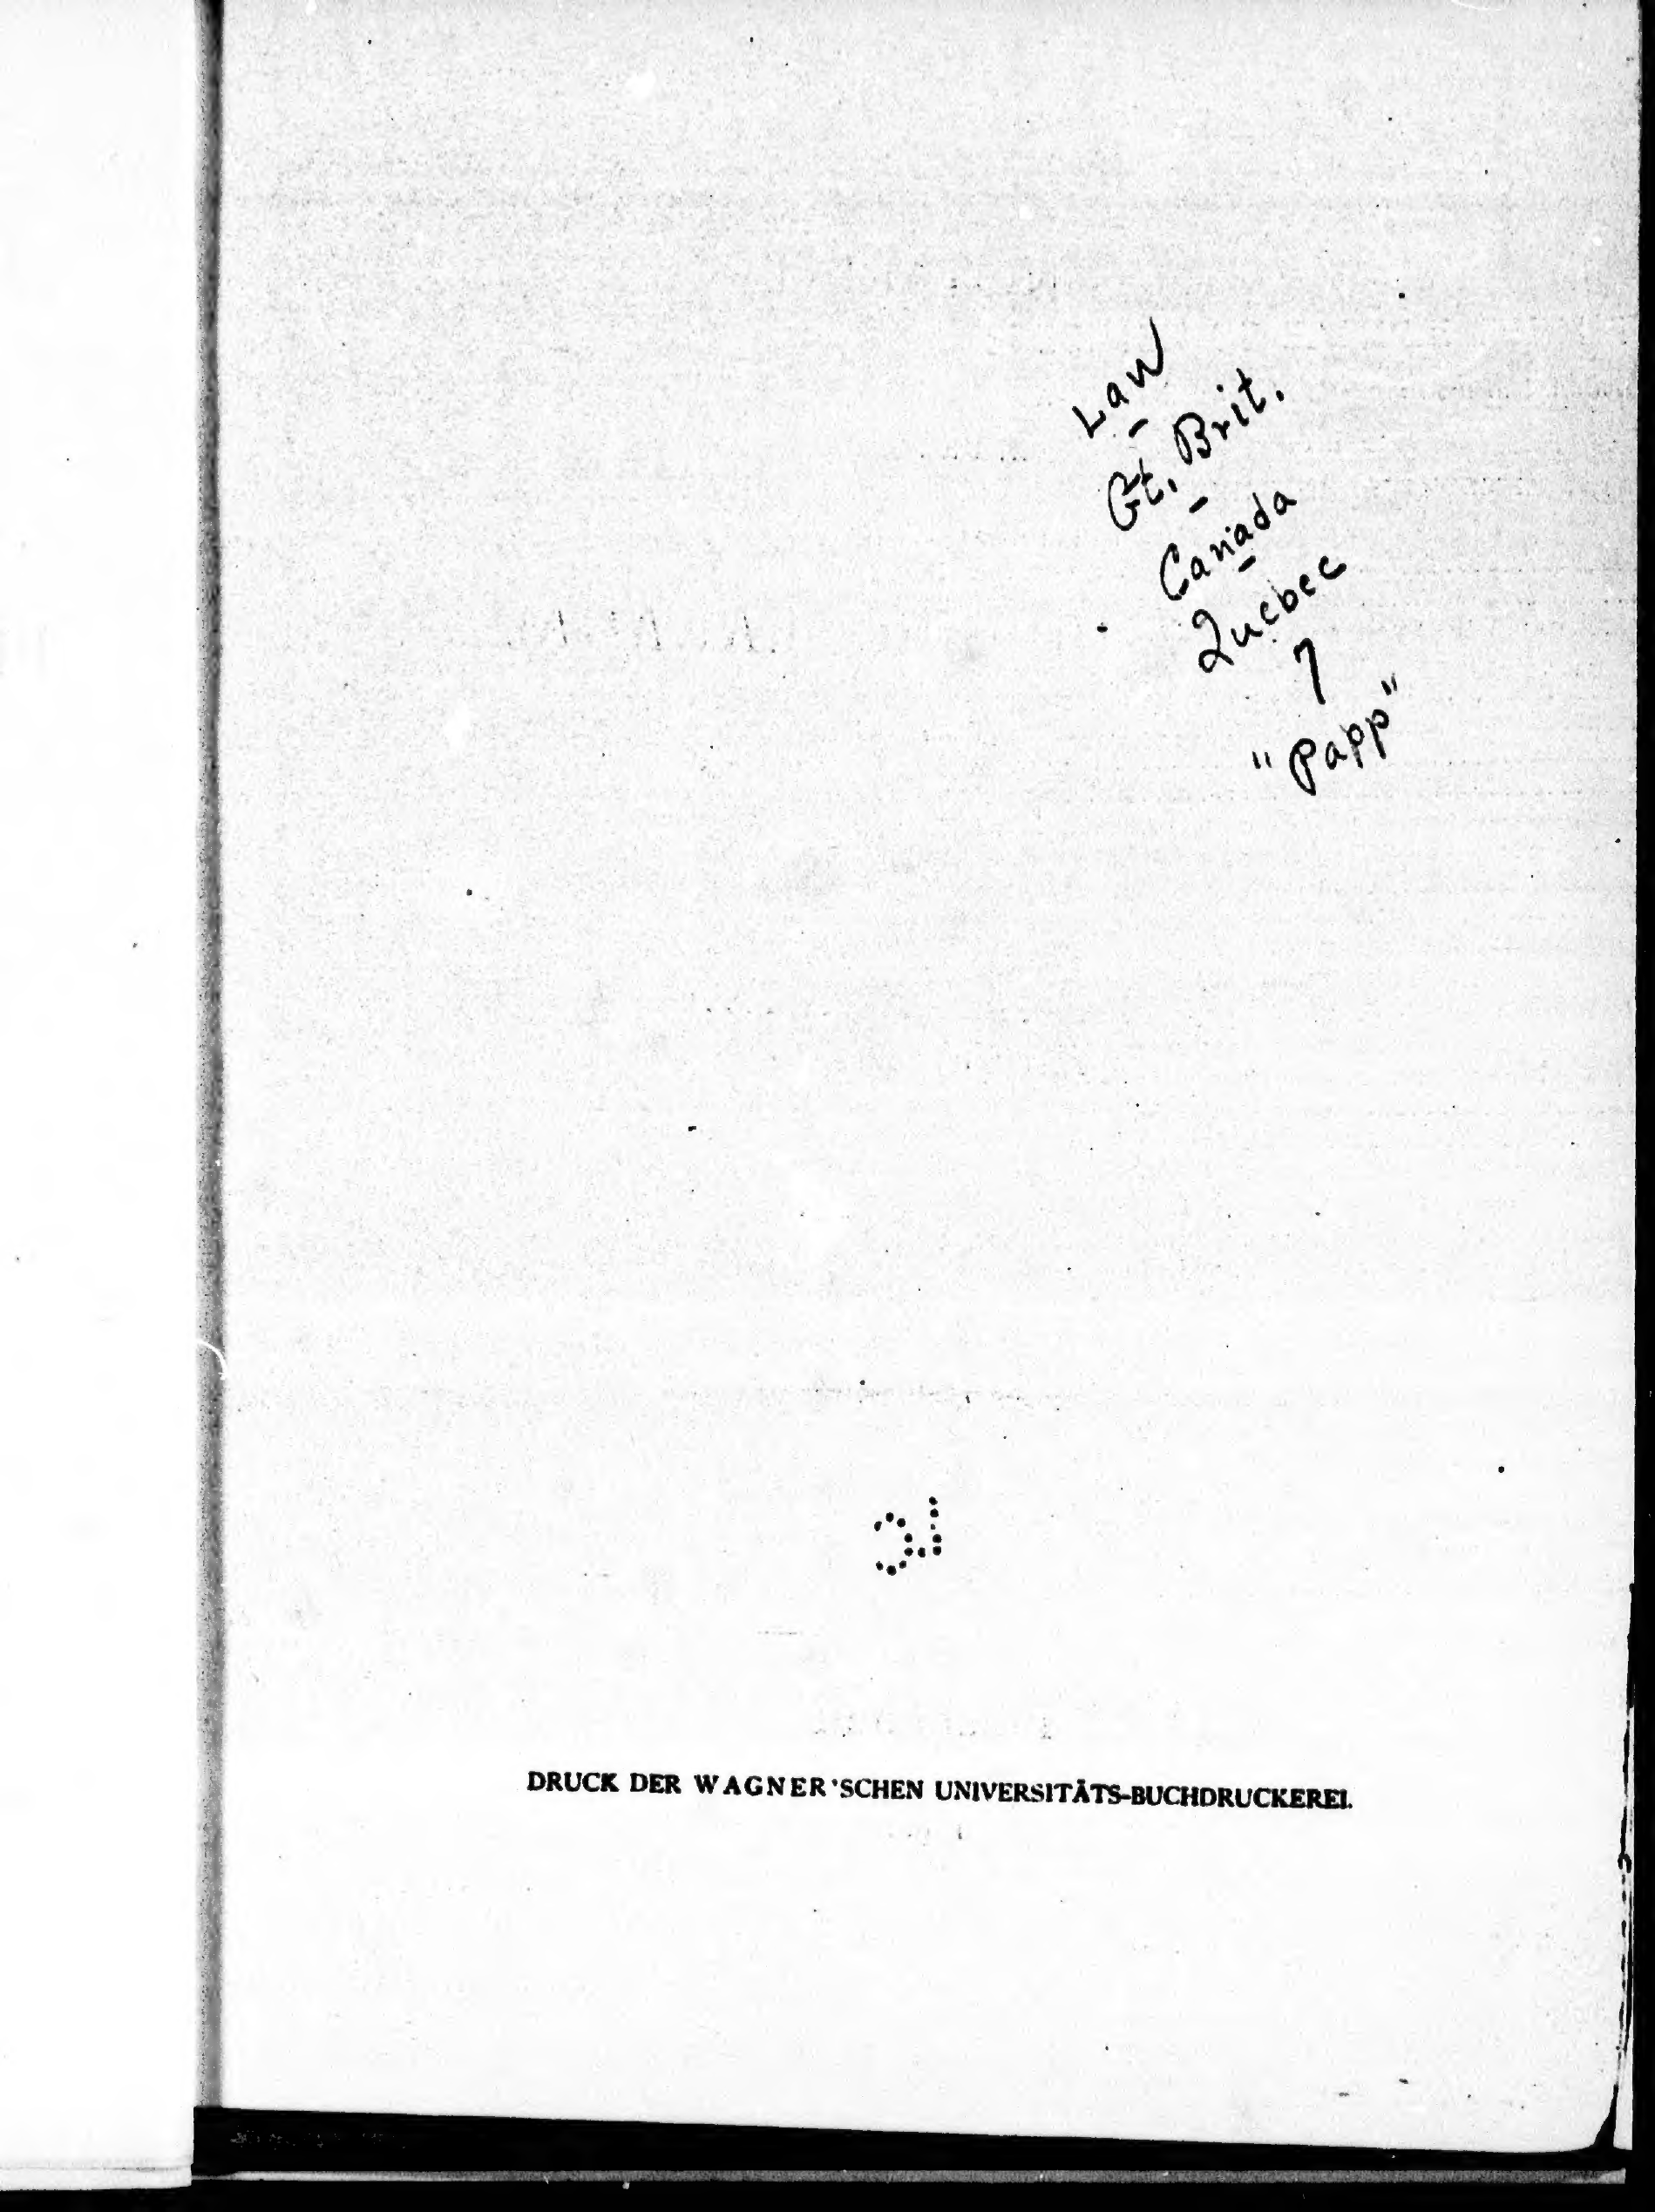 Law
-
Gt. Brit.
-
Canada
-
Quebec
7
"Papp"
DRUCK DER WAGNER'SCHEN UNIVERSITÄTS-BUCHDRUCKEREI.